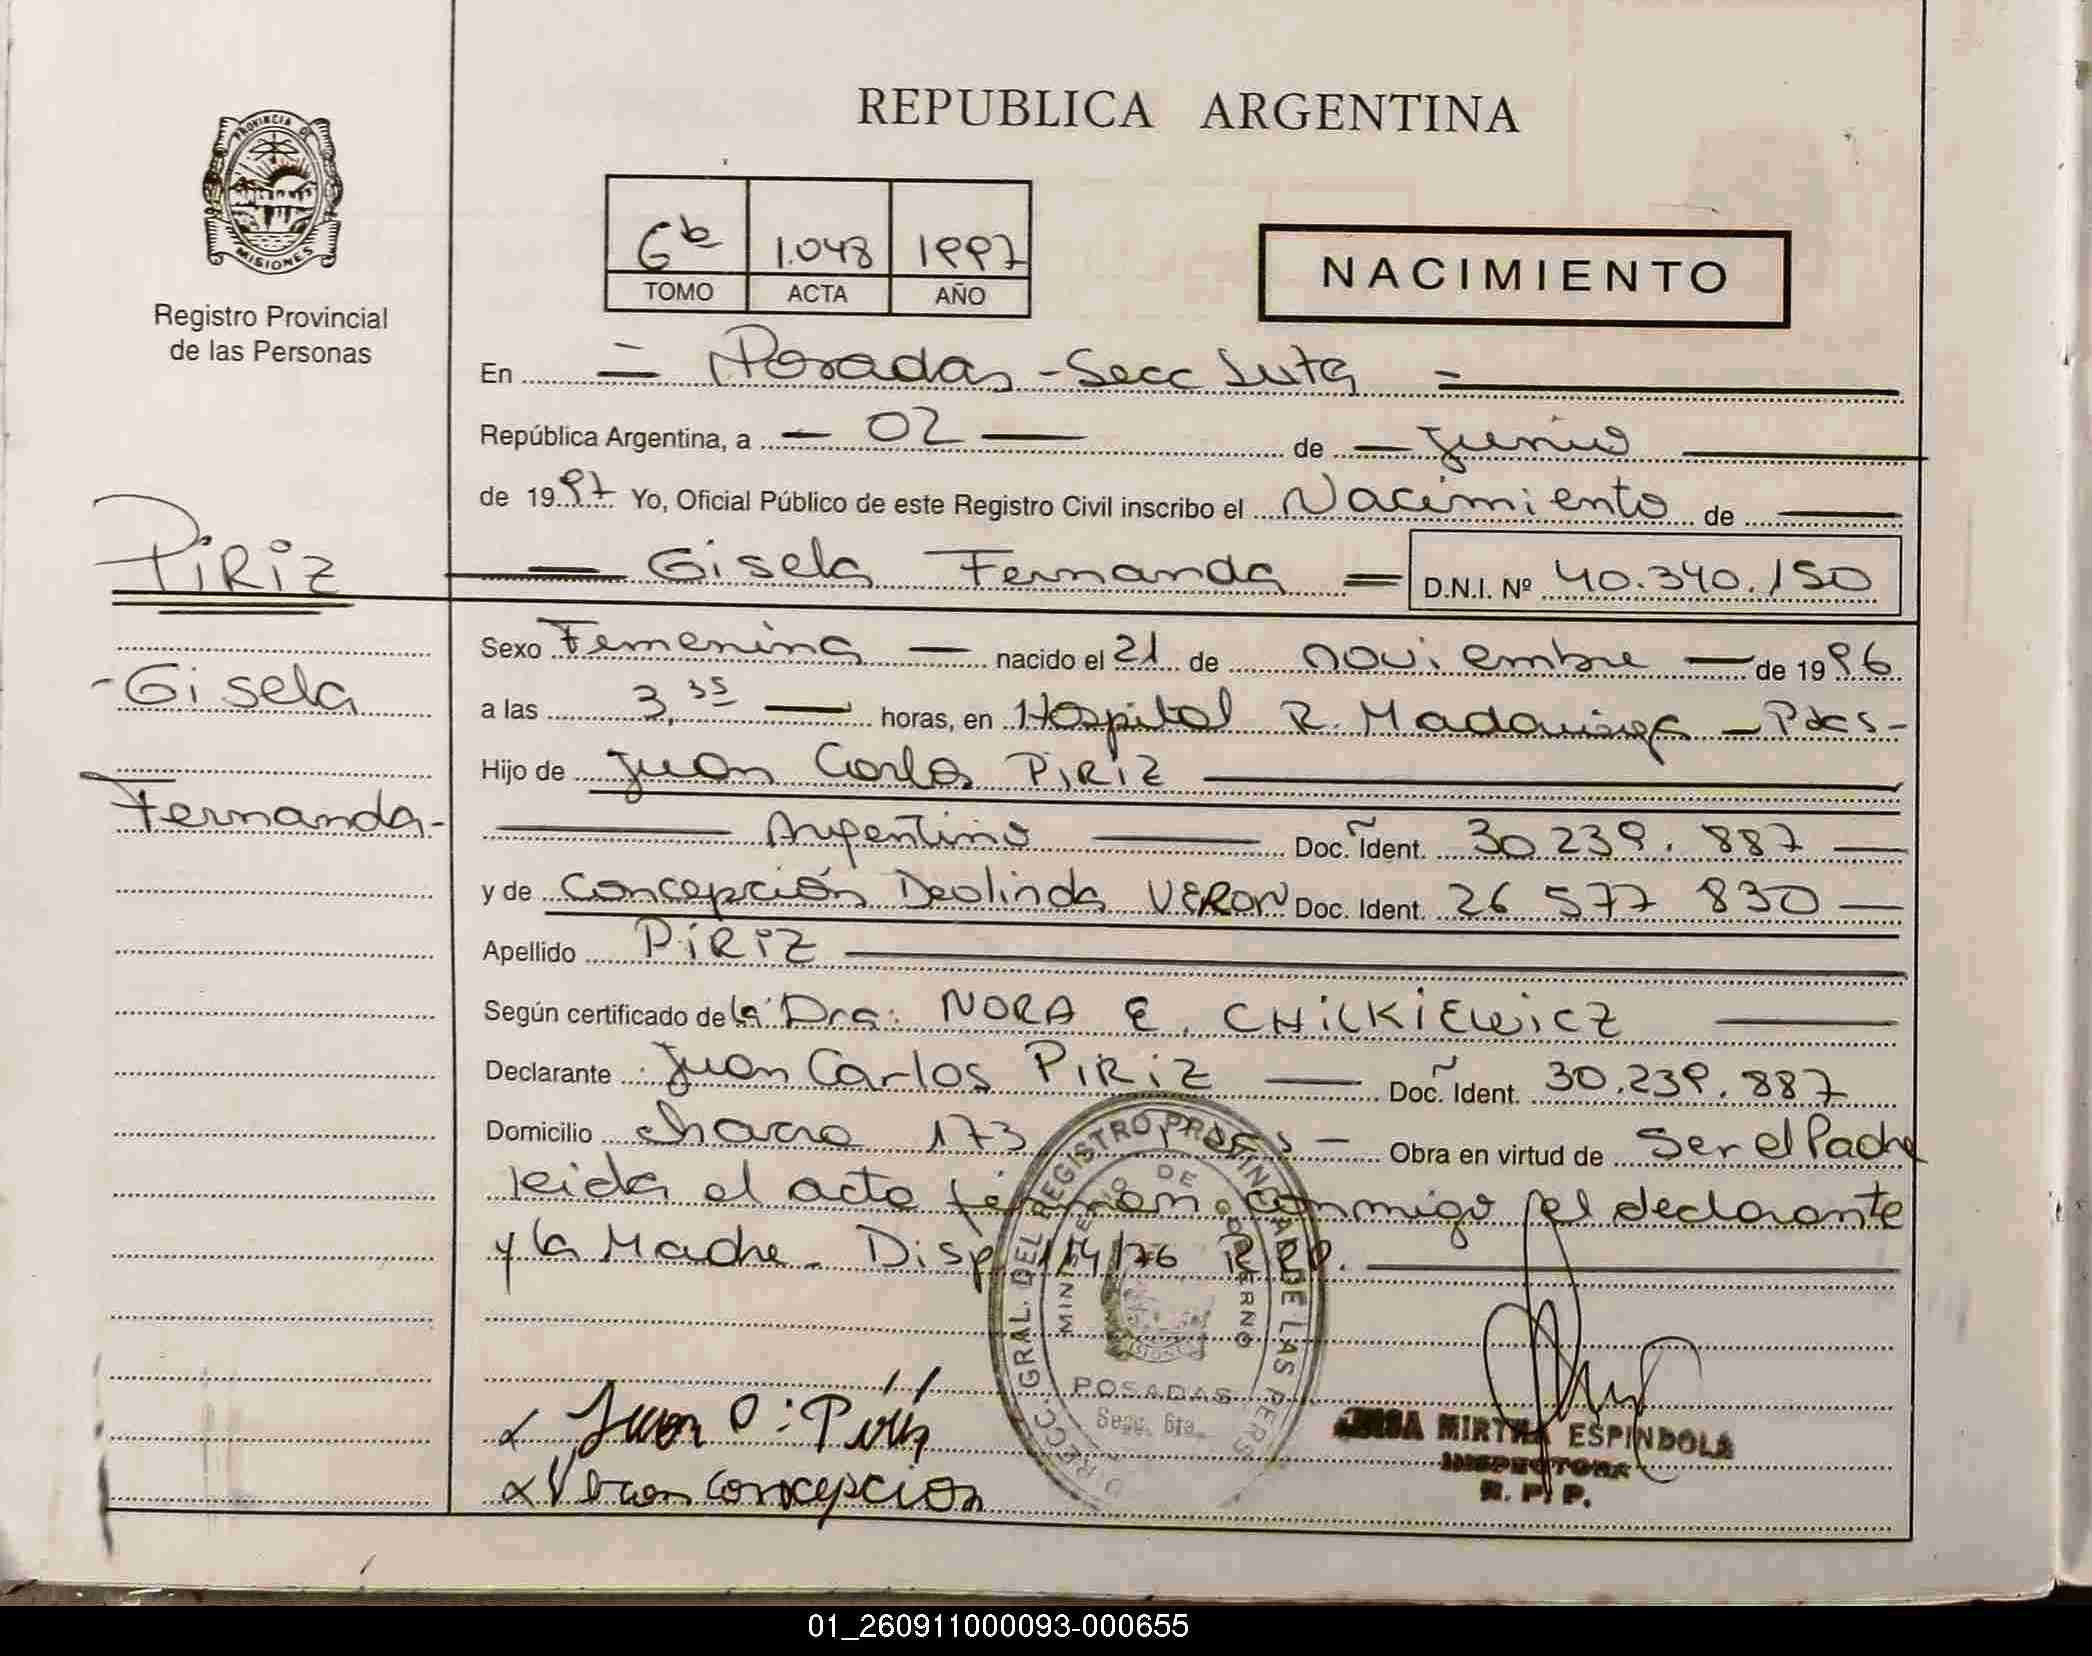 REPUBLICA ARGENTINA
PROVINCIA DE
MISIONES
Registro Provincial
de las Personas
6tº 1.048 1997
TOMO ACTA AÑO
NACIMIENTO
En = Posadas - Secc Sexta =
República Argentina, a — 02 — de — Junio —
de 1997 Yo, Oficial Público de este Registro Civil inscribo el Nacimiento de —
PiRiZ
— Gisela Fernanda = D.N.I. Nº 40.340.150
Sexo Femenina — nacido el 21 de noviembre — de 1996
- Gisela
a las 3,35 — horas, en Hospital R. Madariaga - Pdas -
Hijo de Juan Carlos PIRIZ —
Fernanda -
— Argentino — Doc. Ident. 30.239.887 —
y de Concepción Deolinda VERON Doc. Ident. 26 577 830 —
Apellido PiRiZ —
Según certificado de la Dra: NORA E. CHiLKiEWicZ —
Declarante Juan Carlos PiRiZ — Doc. Ident. 30.239.887
Domicilio chacra 173 Pdas - Obra en virtud de Ser el Padre
leida el acta firman conmigo el declarante
y la Madre - Disp 114/76 R.P.P. —
DIRECC. GRAL. DEL REGISTRO PROVINCIAL DE LAS PERS
MINISTERIO DE GOBIERNO
POSADAS
Secc. 6ta.
x Juan C. Piriz
x Veron concepcion
MIRTHA ESPINDOLA
INSPECTORA
R. P. P.
01_260911000093-000655